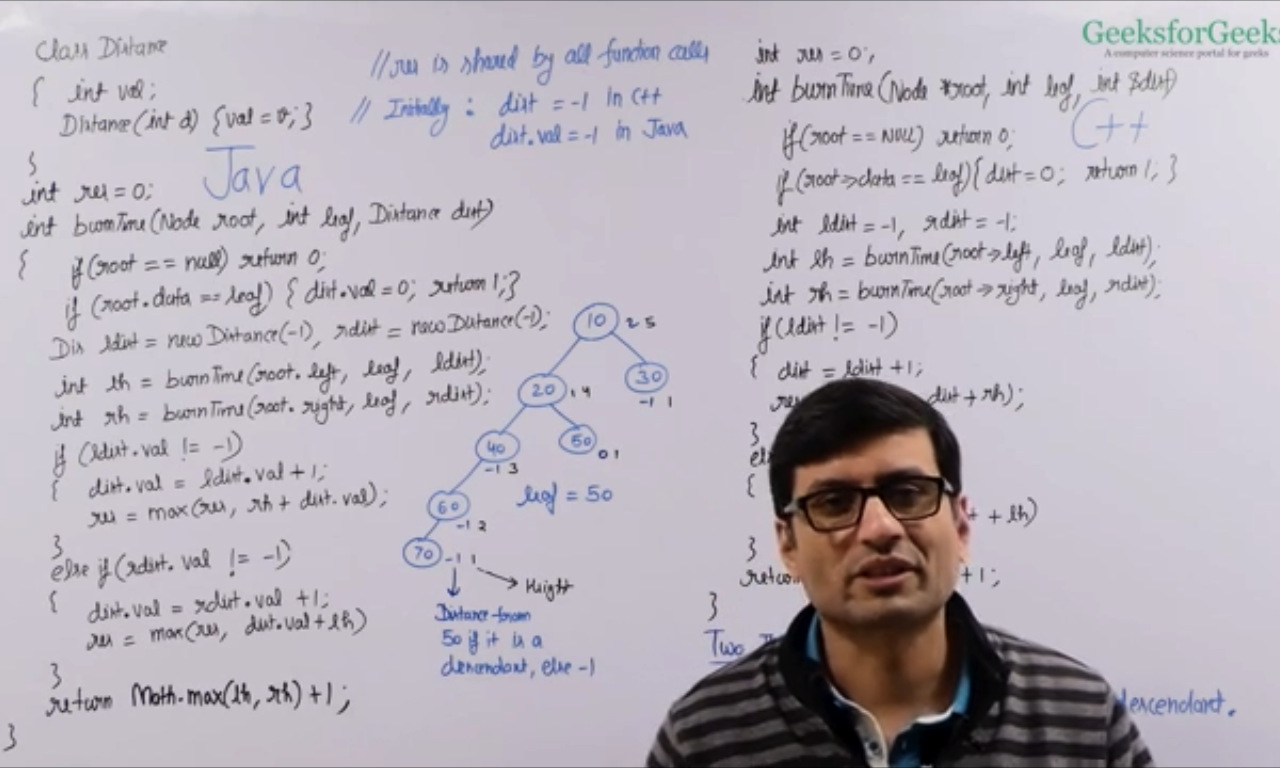 GeeksforGeeks
A computer science portal for geeks
Class Distance
{ int val;
Distance(int d) {val = v;}
}
Java
int res=0;
int burnTime(Node root, int leaf, Distance dist)
{ if(root == null) return 0;
if (root.data == leaf) { dist.val=0; return 1;}
Dis ldist = new Distance(-1), rdist = new Distance(-1);
int lh = burnTime(root.left, leaf, ldist);
int rh = burnTime(root.right, leaf, rdist);
if (ldist.val != -1)
{ dist.val = ldist.val +1;
res = max(res, rh + dist.val);
}
else if(rdist.val != -1)
{ dist.val = rdist.val +1;
res = max(res, dist.val+lh)
}
return Math.max(lh, rh) +1;
}
//res is shared by all function calls
// Initially : dist = -1 in C++
dist.val = -1 in Java
10 2 5
20 1 4
30
-1 1
40
-1 3
50
0 1
60
-1 2
leaf = 50
70 -1 1
Height
Distance from
50 if it is a
descendant, else -1
int res = 0;
int burnTime(Node *root, int leaf, int &dist)
C++
if(root == NULL) return 0;
if(root->data == leaf){ dist = 0; return 1; }
int ldist = -1, rdist = -1;
int lh = burnTime(root->left, leaf, ldist);
int rh = burnTime(root->right, leaf, rdist);
if(ldist != -1)
{ dist = ldist +1;
res dist + rh);
}
{
+ lh)
}
+1;
}
Two
descendant.